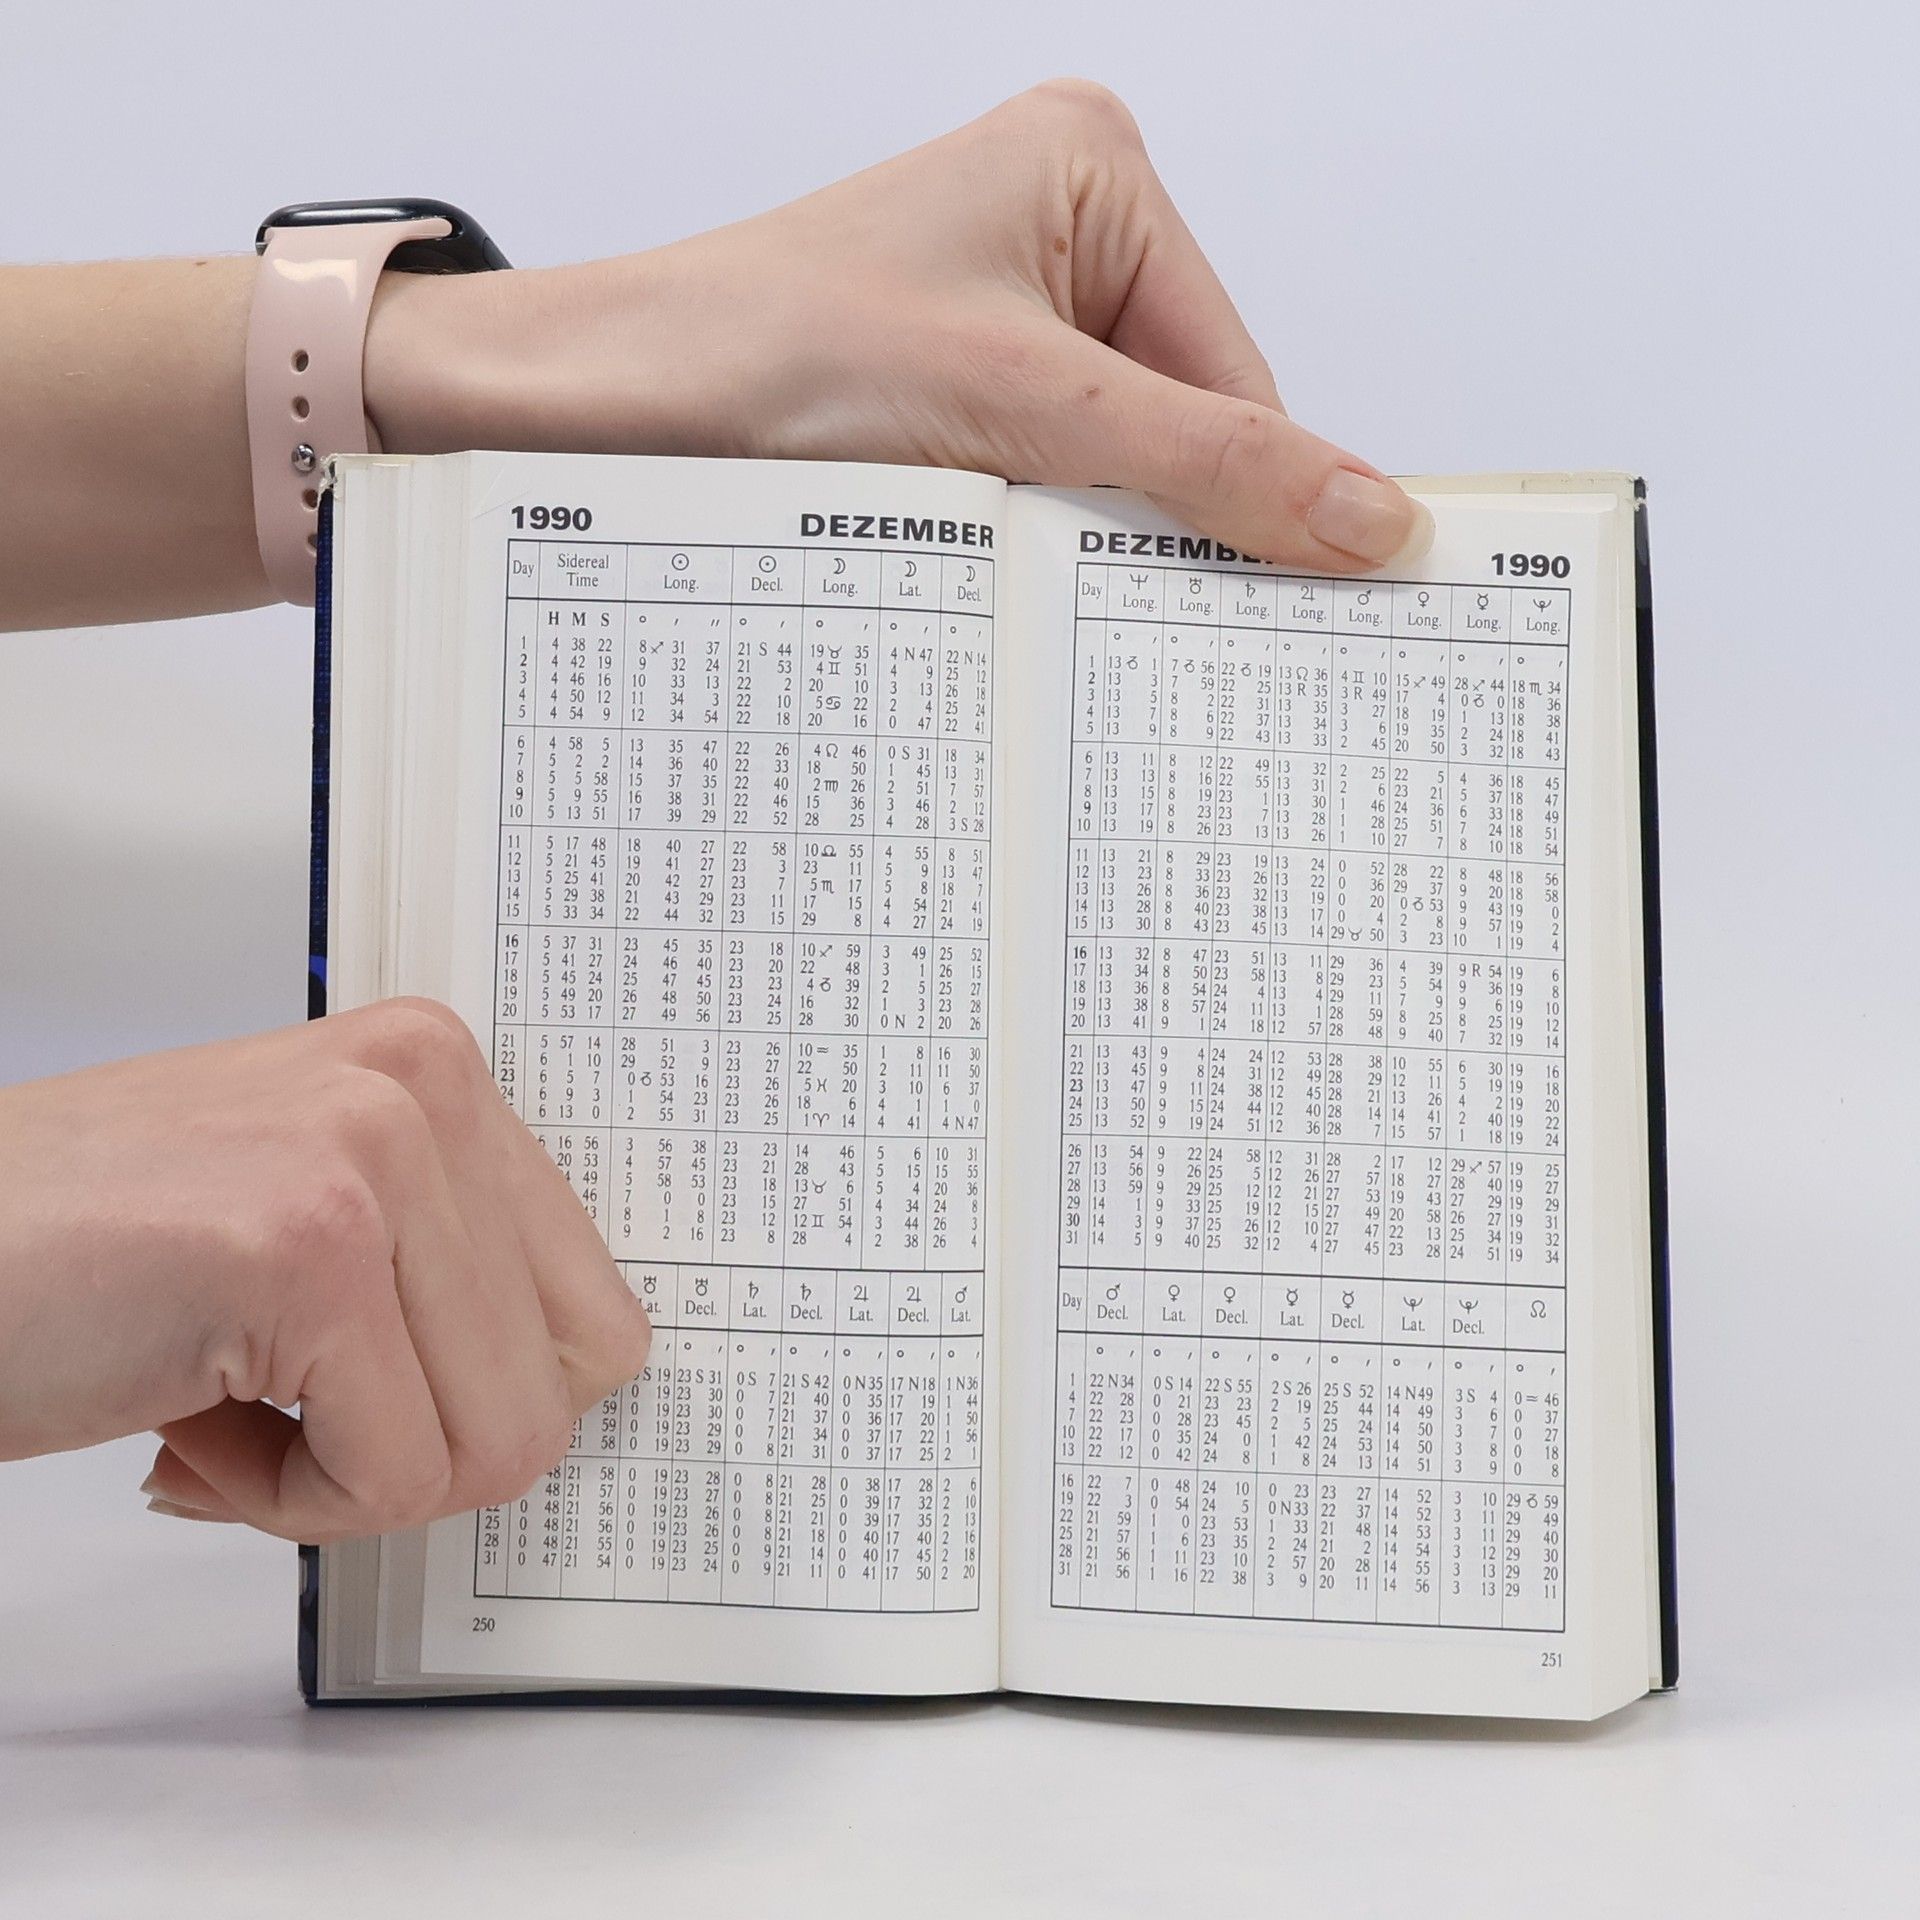 1990 DEZEMBER
Day Sidereal Time ☉ Long. ☉ Decl. ☽ Long. ☽ Lat. ☽ Decl.
H M S ° ′ ″ ° ′ ° ′ ° ′ ° ′
1 4 38 22 8♐ 31 37 21 S 44 19♉ 35 4 N 47 22 N 14
2 4 42 19 9 32 24 21 53 4♊ 51 4 9 25 12
3 4 46 16 10 33 13 22 2 20 10 3 13 26 18
4 4 50 12 11 34 3 22 10 5♋ 22 2 4 25 24
5 4 54 9 12 34 54 22 18 20 16 0 47 22 41
6 4 58 5 13 35 47 22 26 4♌ 46 0 S 31 18 34
7 5 2 2 14 36 40 22 33 18 50 1 45 13 31
8 5 5 58 15 37 35 22 40 2♍ 26 2 51 7 57
9 5 9 55 16 38 31 22 46 15 36 3 46 2 12
10 5 13 51 17 39 29 22 52 28 25 4 28 3 S 28
11 5 17 48 18 40 27 22 58 10♎ 55 4 55 8 51
12 5 21 45 19 41 27 23 3 23 11 5 9 13 47
13 5 25 41 20 42 27 23 7 5♏ 17 5 8 18 7
14 5 29 38 21 43 29 23 11 17 15 4 54 21 41
15 5 33 34 22 44 32 23 15 29 8 4 27 24 19
16 5 37 31 23 45 35 23 18 10♐ 59 3 49 25 52
17 5 41 27 24 46 40 23 20 22 48 3 1 26 15
18 5 45 24 25 47 45 23 23 4♑ 39 2 5 25 27
19 5 49 20 26 48 50 23 24 16 32 1 3 23 28
20 5 53 17 27 49 56 23 25 28 30 0 N 2 20 26
21 5 57 14 28 51 3 23 26 10♒ 35 1 8 16 30
22 6 1 10 29 52 9 23 27 22 50 2 11 11 50
23 6 5 7 0♑ 53 16 23 26 5♓ 20 3 10 6 37
24 6 9 3 1 54 23 23 26 18 6 4 1 1 0
6 13 0 2 55 31 23 25 1♈ 14 4 41 4 N 47
6 16 56 3 56 38 23 23 14 46 5 6 10 31
20 53 4 57 45 23 21 28 43 5 15 15 55
49 5 58 53 23 18 13♉ 6 5 4 20 36
46 7 0 0 23 15 27 51 4 34 24 8
8 1 8 23 12 12♊ 54 3 44 26 3
9 2 16 23 8 28 4 2 38 26 4
♅ ♅ Decl. ♄ Lat. ♄ Decl. ♃ Lat. ♃ Decl. ♂ Lat.
′ ° ′ ° ′ ° ′ ° ′ ° ′ ° ′
S 19 23 S 31 0 S 7 21 S 42 0 N 35 17 N 18 1 N 36
0 19 23 30 0 7 21 40 0 35 17 19 1 44
59 0 19 23 30 0 7 21 37 0 36 17 20 1 50
59 0 19 23 29 0 7 21 34 0 37 17 22 1 56
21 58 0 19 23 29 0 8 21 31 0 37 17 25 2 1
21 58 0 19 23 28 0 8 21 28 0 38 17 28 2 6
48 21 57 0 19 23 27 0 8 21 25 0 39 17 32 2 10
0 48 21 56 0 19 23 26 0 8 21 21 0 39 17 35 2 13
25 0 48 21 56 0 19 23 26 0 8 21 18 0 40 17 40 2 16
28 0 48 21 55 0 19 23 25 0 9 21 14 0 40 17 45 2 18
31 0 47 21 54 0 19 23 24 0 9 21 11 0 41 17 50 2 20
250
1990
Day ♆ Long. ♅ Long. ♄ Long. ♃ Long. ♂ Long. ♀ Long. ☿ Long. ♇ Long.
° ′ ° ′ ° ′ ° ′ ° ′ ° ′ ° ′ ° ′
1 13♑ 1 7♑ 56 22♑ 19 13♌ 36 4♊ 10 15♐ 49 28♐ 44 18♏ 34
2 13 3 7 59 22 25 13 R 35 3 R 49 17 4 0♑ 0 18 36
3 13 5 8 2 22 31 13 35 3 27 18 19 1 13 18 38
4 13 7 8 6 22 37 13 34 3 6 19 35 2 24 18 41
5 13 9 8 9 22 43 13 33 2 45 20 50 3 32 18 43
6 13 11 8 12 22 49 13 32 2 25 22 5 4 36 18 45
7 13 13 8 16 22 55 13 31 2 6 23 21 5 37 18 47
8 13 15 8 19 23 1 13 30 1 46 24 36 6 33 18 49
9 13 17 8 23 23 7 13 28 1 28 25 51 7 24 18 51
10 13 19 8 26 23 13 13 26 1 10 27 7 8 10 18 54
11 13 21 8 29 23 19 13 24 0 52 28 22 8 48 18 56
12 13 23 8 33 23 26 13 22 0 36 29 37 9 20 18 58
13 13 26 8 36 23 32 13 19 0 20 0♑ 53 9 43 19 0
14 13 28 8 40 23 38 13 17 0 4 2 8 9 57 19 2
15 13 30 8 43 23 45 13 14 29♉ 50 3 23 10 1 19 4
16 13 32 8 47 23 51 13 11 29 36 4 39 9 R 54 19 6
17 13 34 8 50 23 58 13 8 29 23 5 54 9 36 19 8
18 13 36 8 54 24 4 13 4 29 11 7 9 9 6 19 10
19 13 38 8 57 24 11 13 1 28 59 8 25 8 25 19 12
20 13 41 9 1 24 18 12 57 28 48 9 40 7 32 19 14
21 13 43 9 4 24 24 12 53 28 38 10 55 6 30 19 16
22 13 45 9 8 24 31 12 49 28 29 12 11 5 19 19 18
23 13 47 9 11 24 38 12 45 28 21 13 26 4 2 19 20
24 13 50 9 15 24 44 12 40 28 14 14 41 2 40 19 22
25 13 52 9 19 24 51 12 36 28 7 15 57 1 18 19 24
26 13 54 9 22 24 58 12 31 28 2 17 12 29♐ 57 19 25
27 13 56 9 26 25 5 12 26 27 57 18 27 28 40 19 27
28 13 59 9 29 25 12 12 21 27 53 19 43 27 29 19 29
29 14 1 9 33 25 19 12 15 27 49 20 58 26 27 19 31
30 14 3 9 37 25 26 12 10 27 47 22 13 25 34 19 32
31 14 5 9 40 25 32 12 4 27 45 23 28 24 51 19 34
Day ♂ Decl. ♀ Lat. ♀ Decl. ☿ Lat. ☿ Decl. ♇ Lat. ♇ Decl. ☊
° ′ ° ′ ° ′ ° ′ ° ′ ° ′ ° ′ ° ′
1 22 N 34 0 S 14 22 S 55 2 S 26 25 S 52 14 N 49 3 S 4 0♒ 46
4 22 28 0 21 23 23 2 19 25 44 14 49 3 6 0 37
7 22 23 0 28 23 45 2 5 25 24 14 50 3 7 0 27
10 22 17 0 35 24 0 1 42 24 53 14 50 3 8 0 18
13 22 12 0 42 24 8 1 8 24 13 14 51 3 9 0 8
16 22 7 0 48 24 10 0 23 23 27 14 52 3 10 29♑ 59
19 22 3 0 54 24 5 0 N 33 22 37 14 52 3 11 29 49
22 21 59 1 0 23 53 1 33 21 48 14 53 3 11 29 40
25 21 57 1 6 23 35 2 24 21 2 14 54 3 12 29 30
28 21 56 1 11 23 10 2 57 20 28 14 55 3 13 29 20
31 21 56 1 16 22 38 3 9 20 11 14 56 3 13 29 11
251